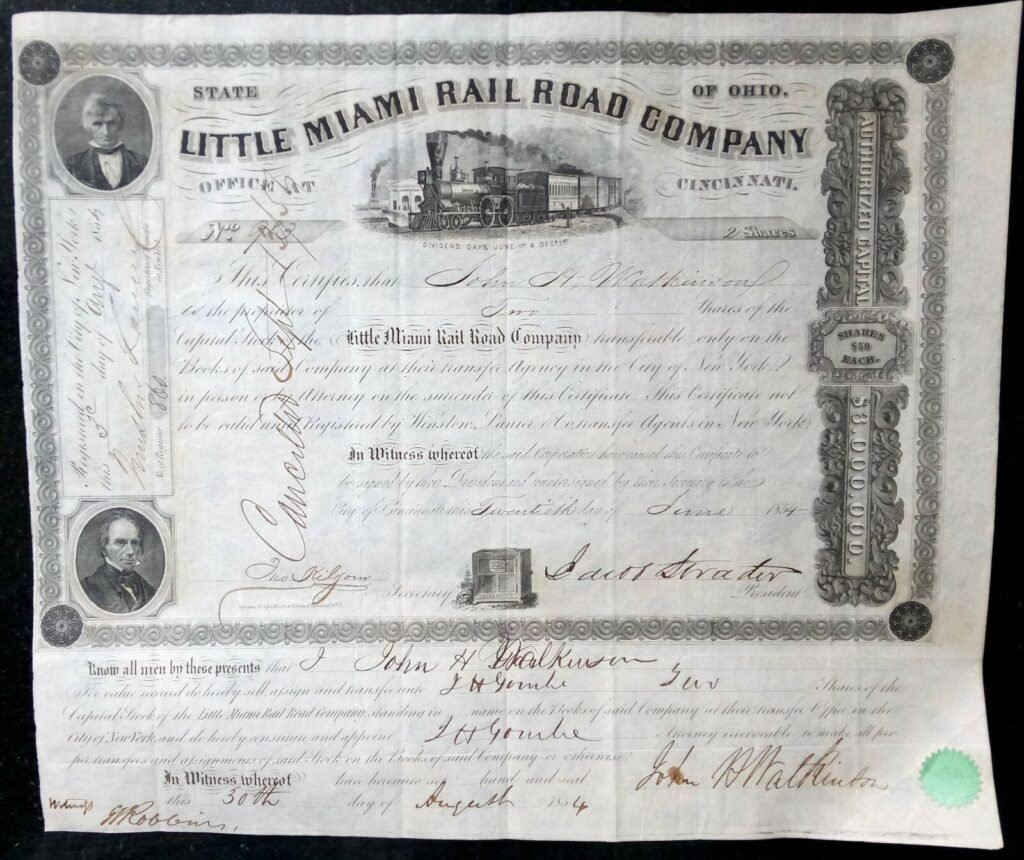 STATE OF OHIO.
LITTLE MIAMI RAIL ROAD COMPANY
OFFICE AT CINCINNATI.
DIVIDEND DAYS JUNE 1st & DECR 1st
No 2 Shares
This Certifies that John H. Watkinson
is the proprietor of Two Shares of the
Capital Stock of the Little Miami Rail Road Company transferable only on the
Books of said Company at their transfer Agency in the City of New York
in person or Attorney on the surrender of this Certificate. This Certificate not
to be valid until Registered by Winslow, Lanier & Co transfer Agents in New York.
In Witness whereof the said Corporation have caused this Certificate to
be signed by their President and countersigned by their Secretary in the
City of Cincinnati this Twentieth day of June 1854
Jno Kilgour Secretary
Jacob Strader President
Cancelled Sept
Registered in the City of New York
this 3d day of Augt 1854
Winslow Lanier
No of Register
AUTHORIZED CAPITAL
SHARES
$50
EACH.
$3,000,000.
Know all men by these presents that I John H Watkinson
For value received do hereby sell assign and transfer unto Two Shares of the
Capital Stock of the Little Miami Rail Road Company standing in name on the Books of said Company at their transfer Office in the
City of New York and do hereby constitute and appoint Attorney irrevocable to make all pro-
per transfers and assignments of said Stock on the Books of said Company or otherwise.
In Witness whereof have hereunto set hand and seal
this 30th day of August 1854
John H Watkinson
Witness
Robbins.